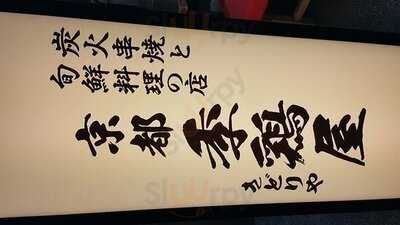 炭火串焼と
旬鮮料理の店
京都季鶏屋
きどりや
Sluurpy